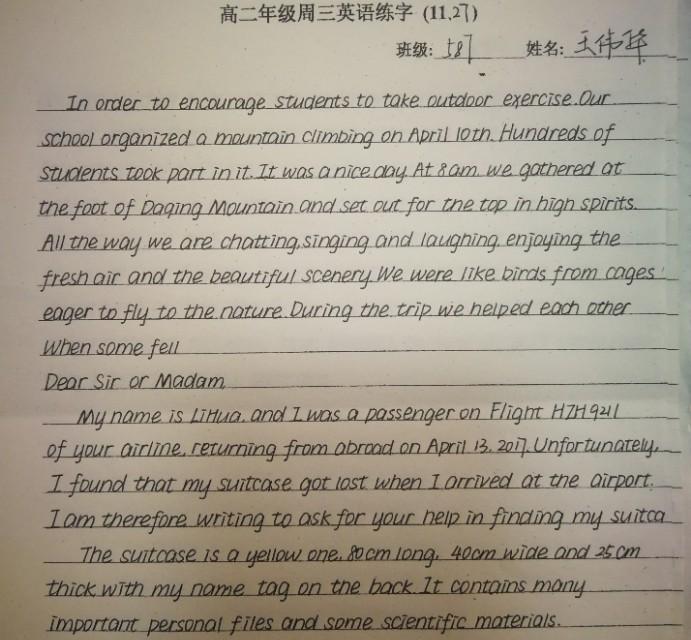 高二年级周三英语练字 (11.27)
班级: 587 姓名: 王伟华
In order to encourage students to take outdoor exercise. Our
school organized a mountain climbing on April 10th. Hundreds of
students took part in it. It was a nice day. At 8 am. we gathered at
the foot of Daqing Mountain and set out for the top in high spirits.
All the way we are chatting, singing and laughing, enjoying the
fresh air and the beautiful scenery. We were like birds from cages
eager to fly to the nature. During the trip we helped each other
When some fell
Dear Sir or Madam,
My name is LiHua, and I was a passenger on Flight HZH9241
of your airline, returning from abroad on April 13, 2017. Unfortunately,
I found that my suitcase got lost when I arrived at the airport.
I am therefore writing to ask for your help in finding my suitca
The suitcase is a yellow one, 80cm long, 40cm wide and 25cm
thick with my name tag on the back. It contains many
important personal files and some scientific materials.